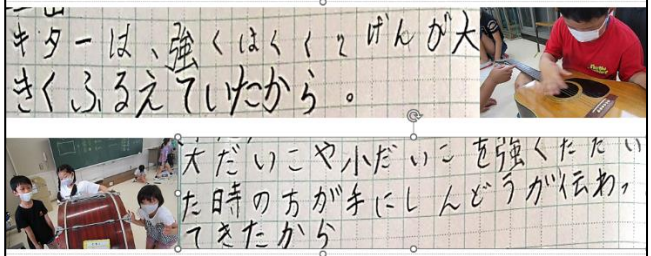 ギターは、強くはくくとげんが大
きくふるえていたから。
大だいこや小だいこを強くたたい
た時の方が手にしんどうが伝わっ
てきたから